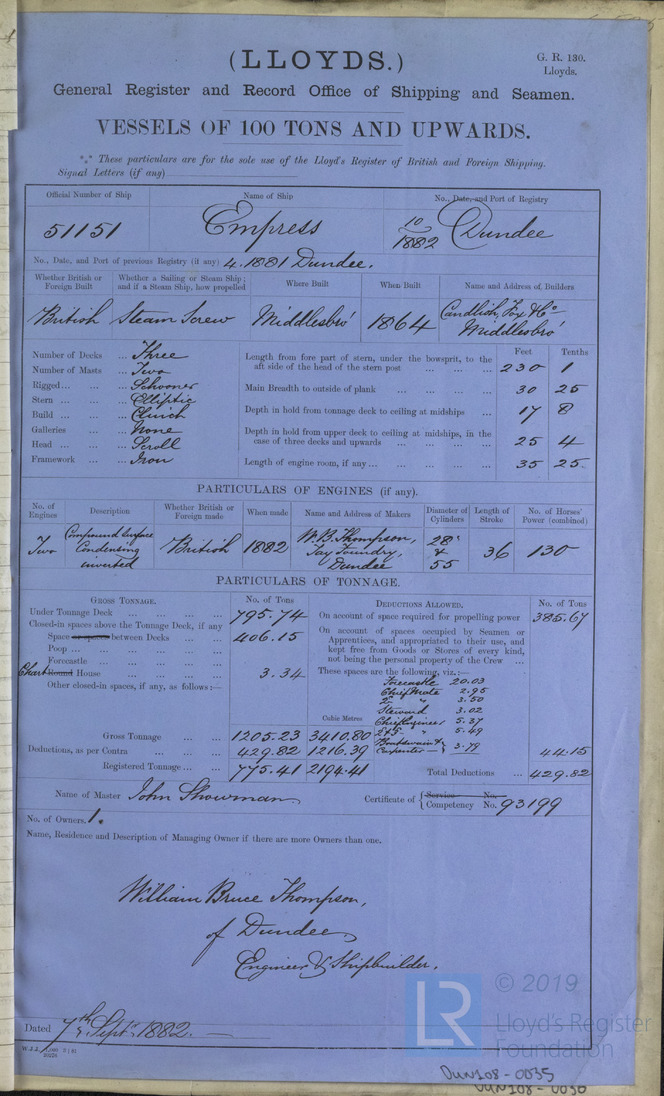 (LLOYDS.)
G. R. 130.
Lloyds.
General Register and Record Office of Shipping and Seamen.
VESSELS OF 100 TONS AND UPWARDS.
*** These particulars are for the sole use of the Lloyd's Register of British and Foreign Shipping.
Signal Letters (if any)
Official Number of Ship Name of Ship No., Date, and Port of Registry
51151 Empress 10/1882 Dundee
No., Date, and Port of previous Registry (if any) 4. 1881 Dundee.
Whether British or Foreign Built Whether a Sailing or Steam Ship; and if a Steam Ship, how propelled Where Built When Built Name and Address of Builders
British Steam Screw Middlesbro' 1864 Candlish, Fox & Co Middlesbro'
Number of Decks ... Three
Number of Masts ... Two
Rigged ... Schooner
Stern ... Elliptic
Build ... Clinch
Galleries None
Head ... Scroll
Framework ... Iron
Feet Tenths
Length from fore part of stern, under the bowsprit, to the
aft side of the head of the stern post 230 1
Main Breadth to outside of plank 30 25
Depth in hold from tonnage deck to ceiling at midships 17 8
Depth in hold from upper deck to ceiling at midships, in the
case of three decks and upwards 25 4
Length of engine room, if any 35 25
PARTICULARS OF ENGINES (if any).
No. of Engines Description Whether British or Foreign made When made Name and Address of Makers Diameter of Cylinders Length of Stroke No. of Horses' Power (combined)
Two Compound Surface Condensing inverted British 1882 W. B. Thompson, Tay Foundry, Dundee 28" & 55 36 130
PARTICULARS OF TONNAGE.
GROSS TONNAGE. No. of Tons
Under Tonnage Deck 795.74
Closed-in spaces above the Tonnage Deck, if any
Space between Decks 406.15
Poop
Forecastle
Chart Round House 3.34
Other closed-in spaces, if any, as follows:—
Cubic Metres
Gross Tonnage 1205.23 3410.80
Deductions, as per Contra 429.82 1216.39
Registered Tonnage 775.41 2194.41
DEDUCTIONS ALLOWED. No. of Tons
On account of space required for propelling power 385.67
On account of spaces occupied by Seamen or
Apprentices, and appropriated to their use, and
kept free from Goods or Stores of every kind,
not being the personal property of the Crew
These spaces are the following, viz.:—
Forecastle 20.03
Chief Mate 2.95
2nd " 3.50
Steward 3.02
Chief Engineer 5.37
2 & 3 " 5.49
Boatswain & Carpenter 3.79 44.15
Total Deductions 429.82
Name of Master John Showman Certificate of Service No.
Competency No. 93199
No. of Owners. 1.
Name, Residence and Description of Managing Owner if there are more Owners than one.
William Bruce Thompson,
of Dundee
Engineer & Shipbuilder.
Dated 7th Septr 1882.
© 2019
LR
Lloyd's Register
Foundation
DUN108-0035
DUN108-0030